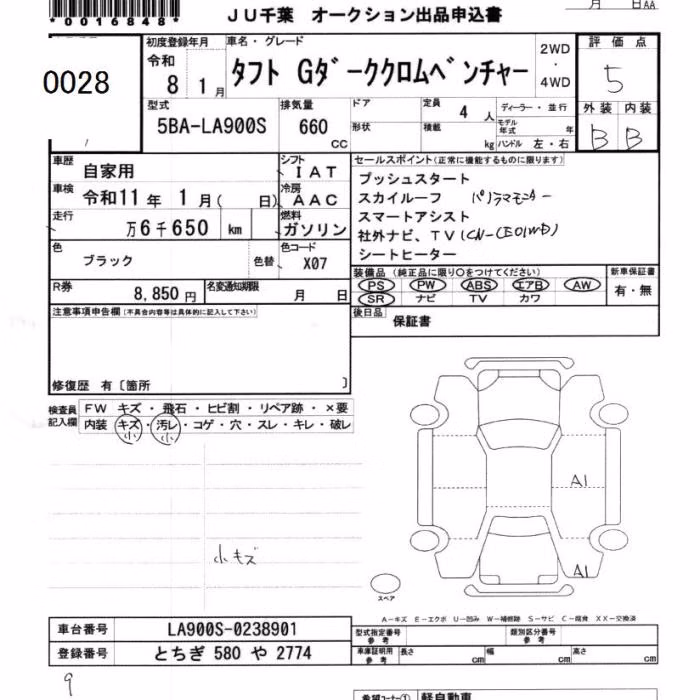 *0016848*
JU千葉 オークション出品申込書
月 日AA
0028
初度登録年月
令和
8 1月
車名・グレード
タフト Gダーククロムベンチャー
2WD
・
4WD
評価点
5
型式
5BA-LA900S
排気量
660
CC
ドア
形状
定員
4人
積載
kg
ディーラー・並行
モデル
年式
年
ハンドル 左・右
外装 内装
B B
車歴
自家用
シフト
IAT
車検
令和11年 1月( 日)
冷房
AAC
走行
万6千650 km
燃料
ガソリン
色
ブラック
色替
色コード
X07
R券
8,850円
名変通知期限
月 日
セールスポイント(正常に機能するものに限ります)
プッシュスタート
スカイルーフ パノラマモニター
スマートアシスト
社外ナビ、TV(CN-CE01WD)
シートヒーター
装備品(純正品に限り○をつけてください)
PS PW ABS エアB AW
SR ナビ TV カワ
新車保証書
有・無
後日品
保証書
注意事項申告欄(不具合内容等は具体的に記入して下さい)
修復歴 有〔箇所 〕
検査員
記入欄
FW キズ・飛石・ヒビ割・リペア跡・×要
内装 キズ・汚レ・コゲ・穴・スレ・キレ・破レ
小 小
小キズ
A1
A1
スペア
A-キズ E-エクボ U-凹み W-補修跡 S-サビ C-腐食 XX-交換済
車台番号 LA900S-0238901
登録番号 とちぎ 580 や 2774
型式指定番号
参考
類別区分番号
参考
車庫証明用
参考
長さ cm 幅 cm 高さ cm
9
希望コーナー① 軽自動車